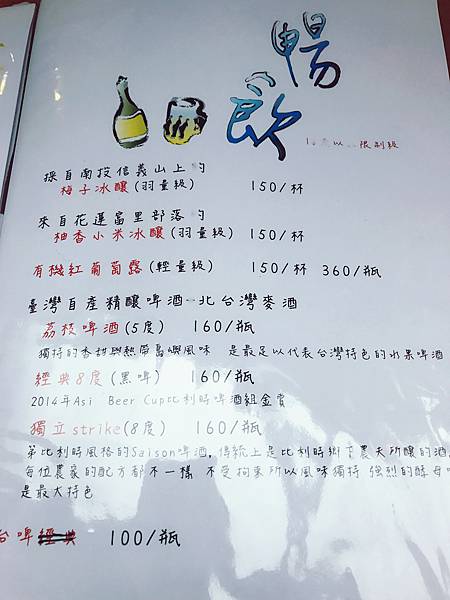 暢飲
18歲以 限制級
採自南投信義山上的
梅子冰釀(羽量級) 150/杯
來自花蓮富里部落的
柚香小米冰釀(羽量級) 150/杯
有機紅葡萄露(輕量級) 150/杯 360/瓶
臺灣自產精釀啤酒-北台灣麥酒
荔枝啤酒(5度) 160/瓶
獨特的香甜與熱帶島嶼風味 是最足以代表台灣特色的水果啤酒
經典8度(黑啤) 160/瓶
2014年Asi Beer Cup比利時啤酒組金賞
獨立strike(8度) 160/瓶
第比利時風格的Saison啤酒,傳統上是比利時鄉下農夫所釀的酒,
每位農家的配方都不一樣 不受拘束所以風味獨特 強烈的酵母
是最大特色
台啤經典 100/瓶